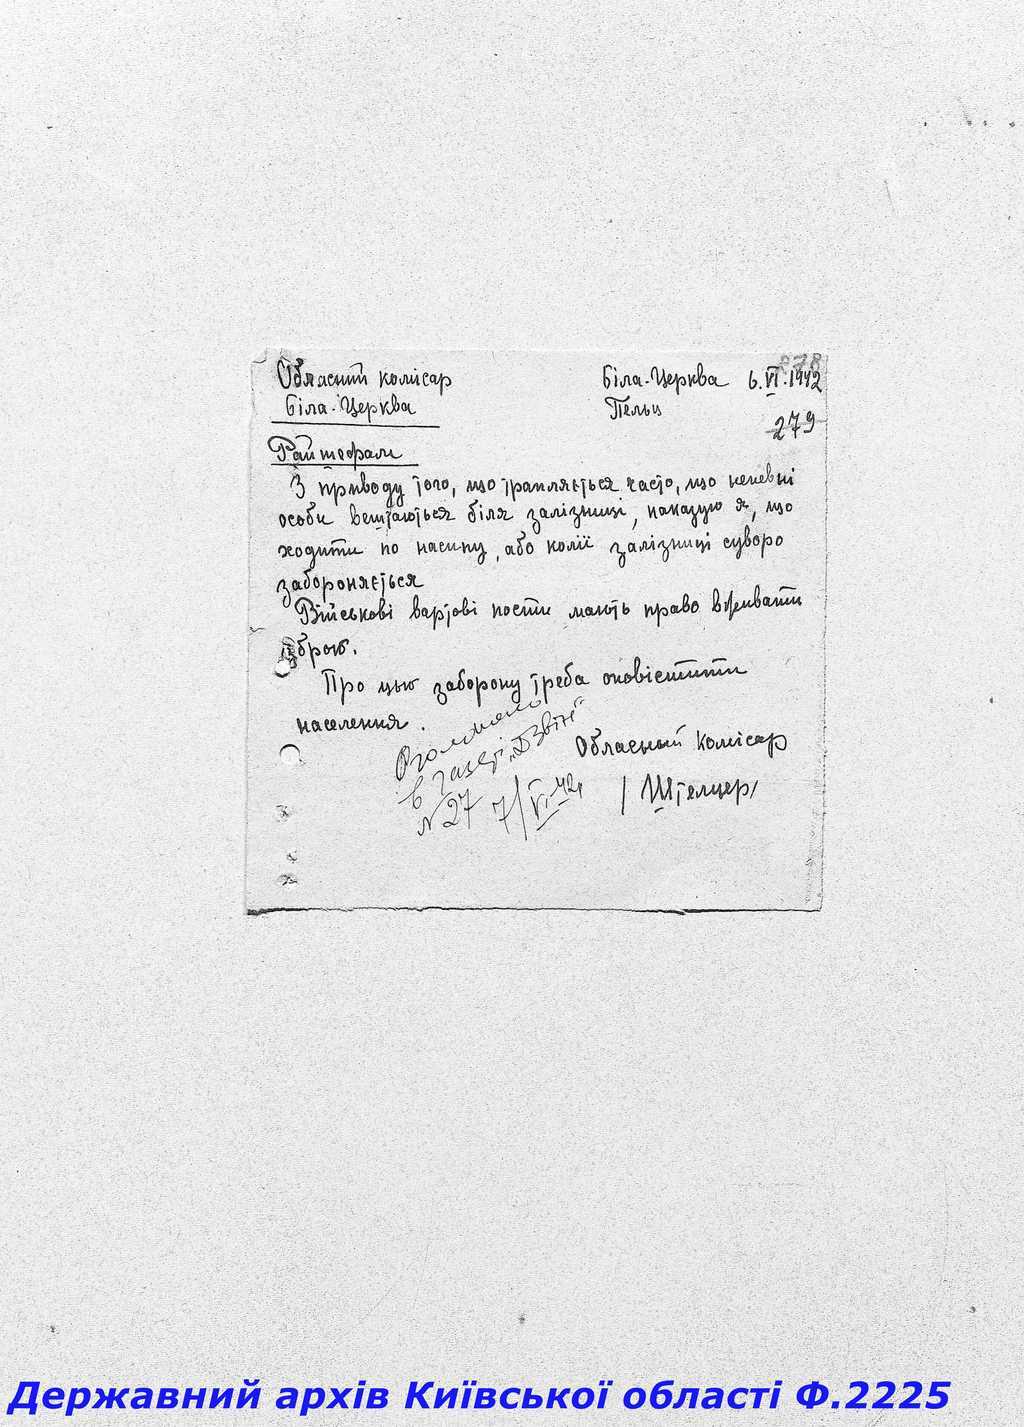 278
Обласний комісар
Біла-Церква 6.VI.1942
Біла-Церква
Пельц
279
Райшефам
З приводу того, що трапляється часто, що непевні
особи вештаються біля залізниці, наказую я, що
ходити по насипу, або колії залізниці суворо
забороняється
Військові вартові пости мають право вживати
зброю.
Про цью заборону треба оповістити
населення.
Оголошено
в газеті „Дзвін"
N 27 7/VI-42
Обласний комісар
/Штелцер/
Державний архів Київської області Ф.2225